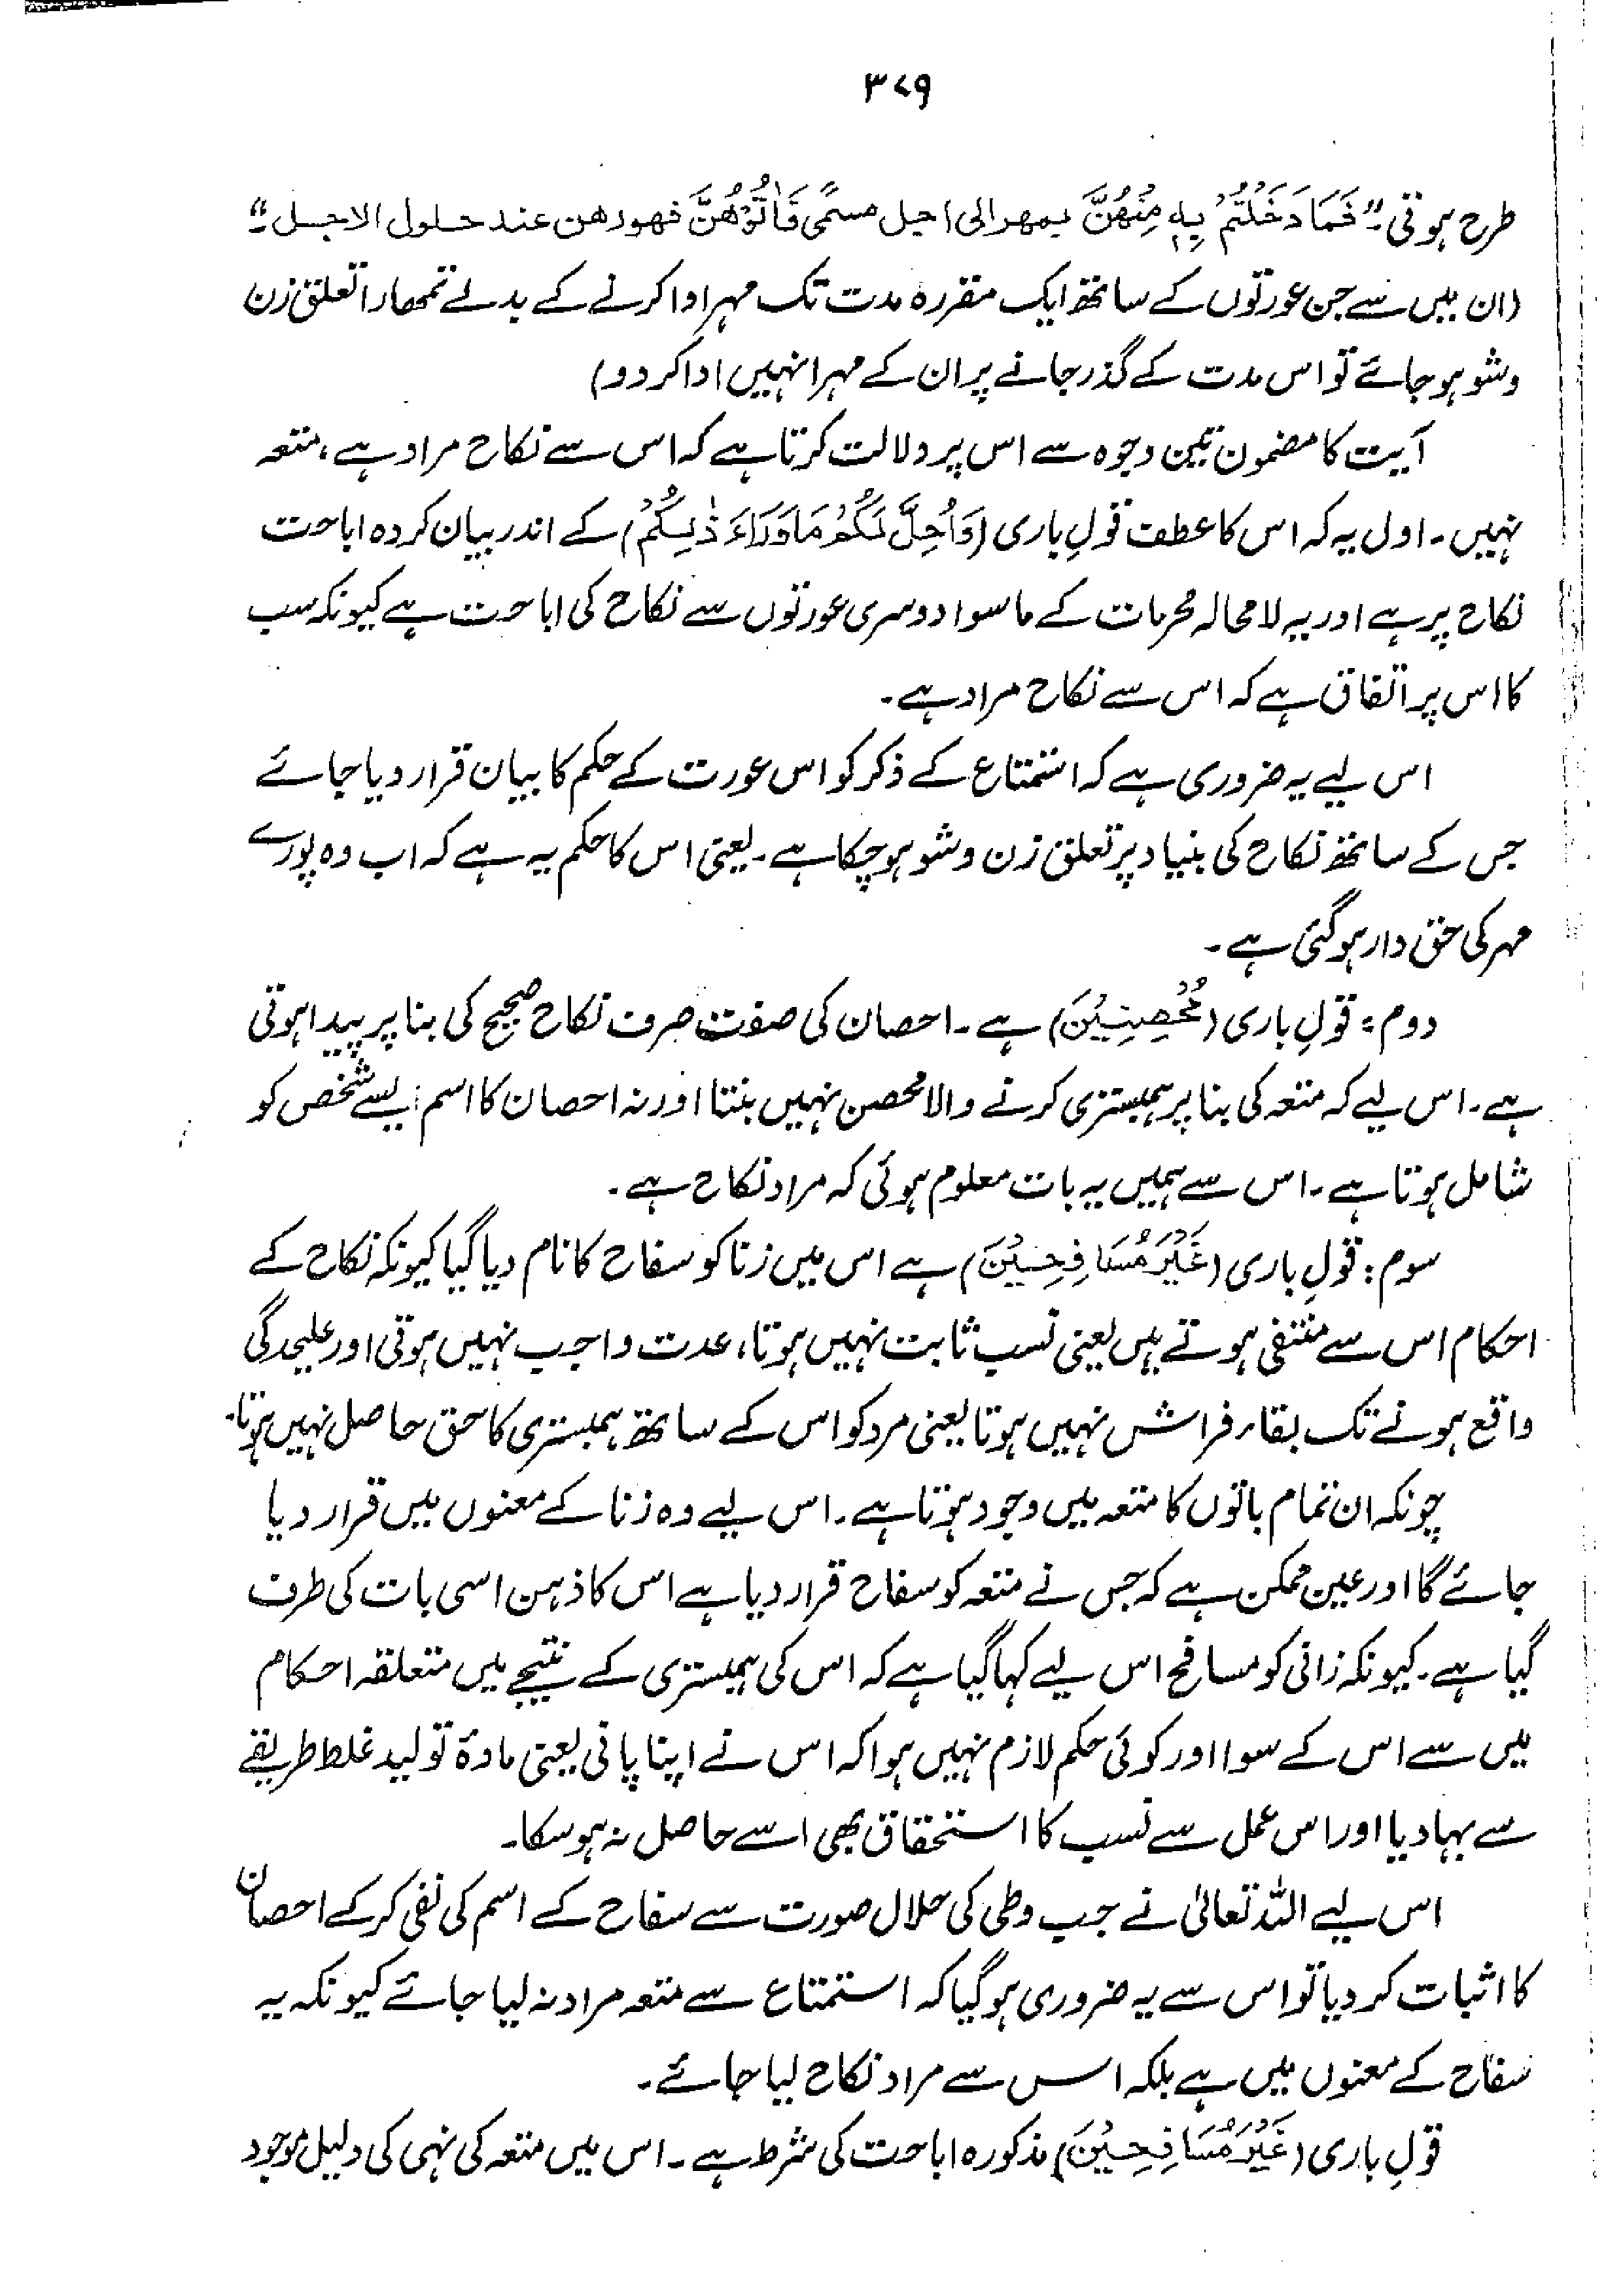 ۳۷۹
طرح ہوتی۔" فَمَا دَخَلْتُمْ بِهٖ مِنْهُنَّ بمهر الی اجل مسمًّی فَاٰتُوْهُنَّ مهورهن عند حلول الاجل۔"
(ان میں سے جن عورتوں کے ساتھ ایک مقررہ مدت تک مہر ادا کرنے کے بدلے تمھارا تعلق زن
و شو ہو جائے تو اس مدت کے گذر جانے پر ان کے مہر انہیں ادا کر دو)
آیت کا مضمون تین وجوہ سے اس پر دلالت کرتا ہے کہ اس سے نکاح مراد ہے، متعہ
نہیں۔ اول یہ کہ اس کا عطف قولِ باری (وَاُحِلَّ لَكُمْ مَا وَرَاءَ ذٰلِكُمْ) کے اندر بیان کردہ اباحت
نکاح پر ہے اور یہ لا محالہ محرمات کے ماسوا دوسری عورتوں سے نکاح کی اباحت ہے کیونکہ سب
کا اس پر اتفاق ہے کہ اس سے نکاح مراد ہے۔
اس لیے یہ ضروری ہے کہ استمتاع کے ذکر کو اس عورت کے حکم کا بیان قرار دیا جائے
جس کے ساتھ نکاح کی بنیاد پر تعلق زن و شو ہو چکا ہے۔ یعنی اس کا حکم یہ ہے کہ اب وہ پورے
مہر کی حق دار ہو گئی ہے۔
دوم: قولِ باری (مُحْصِنِيْنَ) ہے۔ احصان کی صفت صرف نکاح صحیح کی بنا پر پیدا ہوتی
ہے۔ اس لیے کہ متعہ کی بنا پر ہمبستری کرنے والا محصن نہیں بنتا اور نہ احصان کا اسم ایسے شخص کو
شامل ہوتا ہے۔ اس سے ہمیں یہ بات معلوم ہوئی کہ مراد نکاح ہے۔
سوم: قولِ باری (غَيْرَ مُسَافِحِيْنَ) ہے اس میں زنا کو سفاح کا نام دیا گیا کیونکہ نکاح کے
احکام اس سے منتفی ہوتے ہیں یعنی نسب ثابت نہیں ہوتا، عدت واجب نہیں ہوتی اور علیحدگی
واقع ہونے تک بقاء فراش نہیں ہوتا یعنی مرد کو اس کے ساتھ ہمبستری کا حق حاصل نہیں ہوتا۔
چونکہ ان تمام باتوں کا متعہ میں وجود ہوتا ہے۔ اس لیے وہ زنا کے معنوں میں قرار دیا
جائے گا اور عین ممکن ہے کہ جس نے متعہ کو سفاح قرار دیا ہے اس کا ذہن اسی بات کی طرف
گیا ہے۔ کیونکہ زانی کو مسافح اس لیے کہا گیا ہے کہ اس کی ہمبستری کے نتیجے میں متعلقہ احکام
میں سے اس کے سوا اور کوئی حکم لازم نہیں ہوا کہ اس نے اپنا پانی یعنی مادۂ تولید غلط طریقے
سے بہا دیا اور اس عمل سے نسب کا استحقاق بھی اسے حاصل نہ ہو سکا۔
اس لیے اللہ تعالیٰ نے جب وطی کی حلال صورت سے سفاح کے اسم کی نفی کر کے احصان
کا اثبات کر دیا تو اس سے یہ ضروری ہو گیا کہ استمتاع سے متعہ مراد نہ لیا جائے کیونکہ یہ
سفاح کے معنوں میں ہے بلکہ اس سے مراد نکاح لیا جائے۔
قولِ باری (غَيْرَ مُسَافِحِيْنَ) مذکورہ اباحت کی شرط ہے۔ اس میں متعہ کی نہی کی دلیل موجود